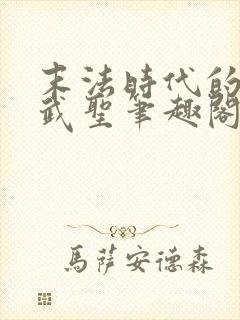 末法時代的
武聖筆趣閣
馬薩安德森